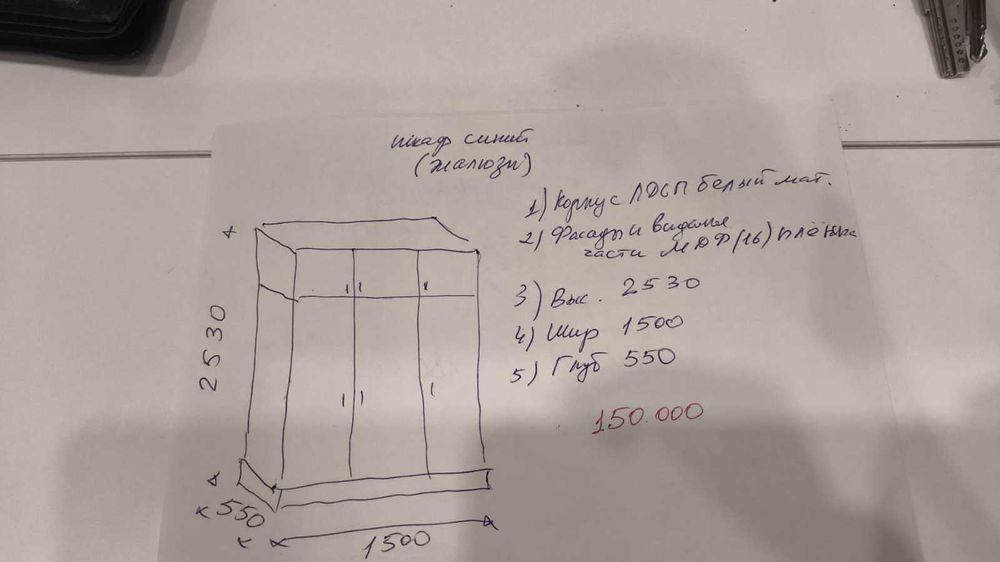 шкаф синий
(жалюзи)
1) Корпус ЛДСП белый мат.
2) Фасады и видимые
части МДФ(16) плёнка
3) Выс. 2530
4) Шир 1500
5) Глуб 550
150.000
2530
550
1500